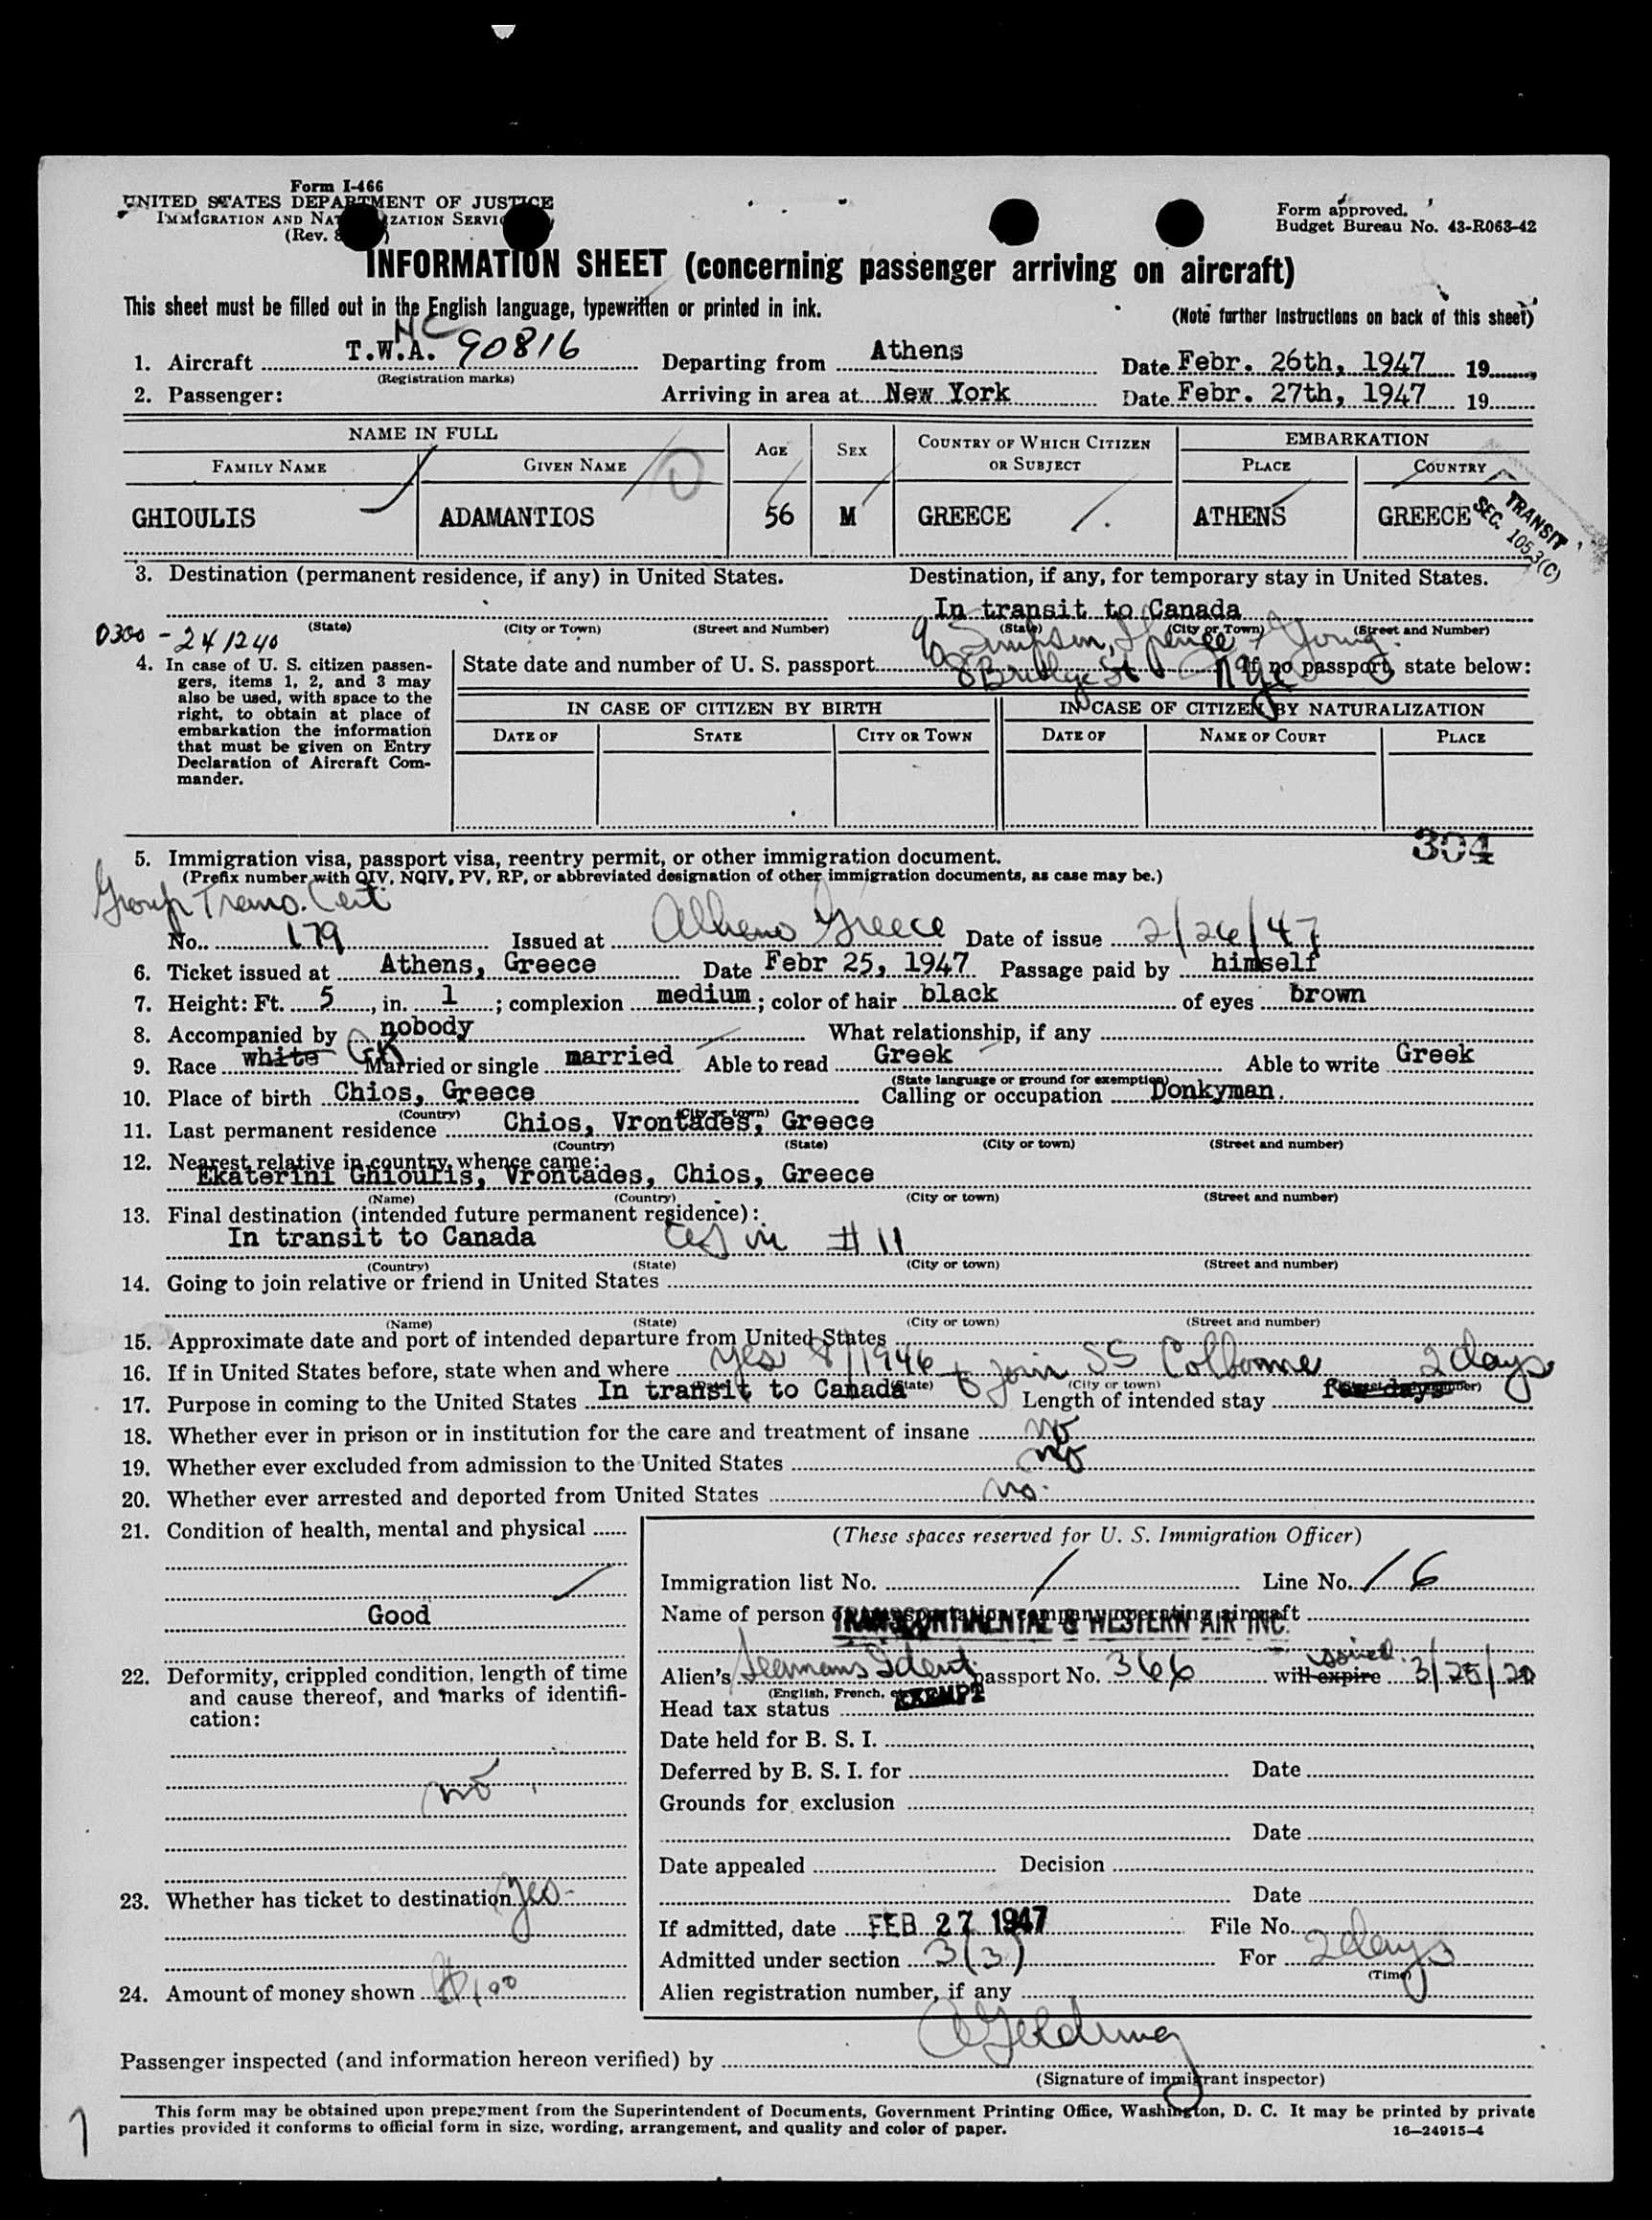 Form I-466
UNITED STATES DEPARTMENT OF JUSTICE
IMMIGRATION AND NATURALIZATION SERVICE
(Rev.
Form approved.
Budget Bureau No. 43-R063-42
INFORMATION SHEET (concerning passenger arriving on aircraft)
This sheet must be filled out in the English language, typewritten or printed in ink.
(Note further instructions on back of this sheet)
1. Aircraft T.W.A. NC 90816 Departing from Athens Date Febr. 26th, 1947 19
(Registration marks)
2. Passenger: Arriving in area at New York Date Febr. 27th, 1947 19
NAME IN FULL AGE SEX COUNTRY OF WHICH CITIZEN OR SUBJECT EMBARKATION
FAMILY NAME GIVEN NAME PLACE COUNTRY
GHIOULIS ADAMANTIOS 56 M GREECE ATHENS GREECE
TRANSIT
SEC. 105.3(C)
3. Destination (permanent residence, if any) in United States. Destination, if any, for temporary stay in United States.
In transit to Canada
(State) (City or Town) (Street and Number) (State) (City or Town) (Street and Number)
0300 - 241240
c/o Simpson, Spence & Young
8 Bridge St NYC
4. In case of U. S. citizen passengers, items 1, 2, and 3 may also be used, with space to the right, to obtain at place of embarkation the information that must be given on Entry Declaration of Aircraft Commander.
State date and number of U. S. passport If no passport, state below:
IN CASE OF CITIZEN BY BIRTH IN CASE OF CITIZEN BY NATURALIZATION
DATE OF STATE CITY OR TOWN DATE OF NAME OF COURT PLACE
304
5. Immigration visa, passport visa, reentry permit, or other immigration document.
(Prefix number with QIV, NQIV, PV, RP, or abbreviated designation of other immigration documents, as case may be.)
Group Trans. Cert
No. 179 Issued at Athens Greece Date of issue 2/26/47
6. Ticket issued at Athens, Greece Date Febr 25, 1947 Passage paid by himself
7. Height: Ft. 5, in. 1; complexion medium; color of hair black of eyes brown
8. Accompanied by nobody What relationship, if any
9. Race white Gk Married or single married Able to read Greek Able to write Greek
(State language or ground for exemption)
10. Place of birth Chios, Greece Calling or occupation Donkyman.
(Country) (City or town)
11. Last permanent residence Chios, Vrontades, Greece
(Country) (State) (City or town) (Street and number)
12. Nearest relative in country whence came:
Ekaterini Ghioulis, Vrontades, Chios, Greece
(Name) (Country) (City or town) (Street and number)
13. Final destination (intended future permanent residence):
In transit to Canada as in #11
(Country) (State) (City or town) (Street and number)
14. Going to join relative or friend in United States
(Name) (State) (City or town) (Street and number)
15. Approximate date and port of intended departure from United States
16. If in United States before, state when and where yes 8/1946 to join SS
(State) (City or town)
17. Purpose in coming to the United States In transit to Canada Length of intended stay few days 2 days
18. Whether ever in prison or in institution for the care and treatment of insane no
19. Whether ever excluded from admission to the United States no
20. Whether ever arrested and deported from United States no.
21. Condition of health, mental and physical
Good
22. Deformity, crippled condition, length of time and cause thereof, and marks of identification:
no
23. Whether has ticket to destination yes
24. Amount of money shown $100
(These spaces reserved for U. S. Immigration Officer)
Immigration list No. 1 Line No. 16
Name of person or transportation company operating aircraft
TRANSCONTINENTAL & WESTERN AIR INC.
Alien's Seamans Ident. passport No. 366 will expire issued
(English, French, etc.)
Head tax status EXEMPT
Date held for B. S. I.
Deferred by B. S. I. for Date
Grounds for exclusion
Date
Date appealed Decision
Date
If admitted, date FEB 27 1947 File No.
Admitted under section 3(3) For 2 days
(Time)
Alien registration number, if any
Passenger inspected (and information hereon verified) by
(Signature of immigrant inspector)
This form may be obtained upon prepayment from the Superintendent of Documents, Government Printing Office, Washington, D. C. It may be printed by private
parties provided it conforms to official form in size, wording, arrangement, and quality and color of paper.
16—24915-4